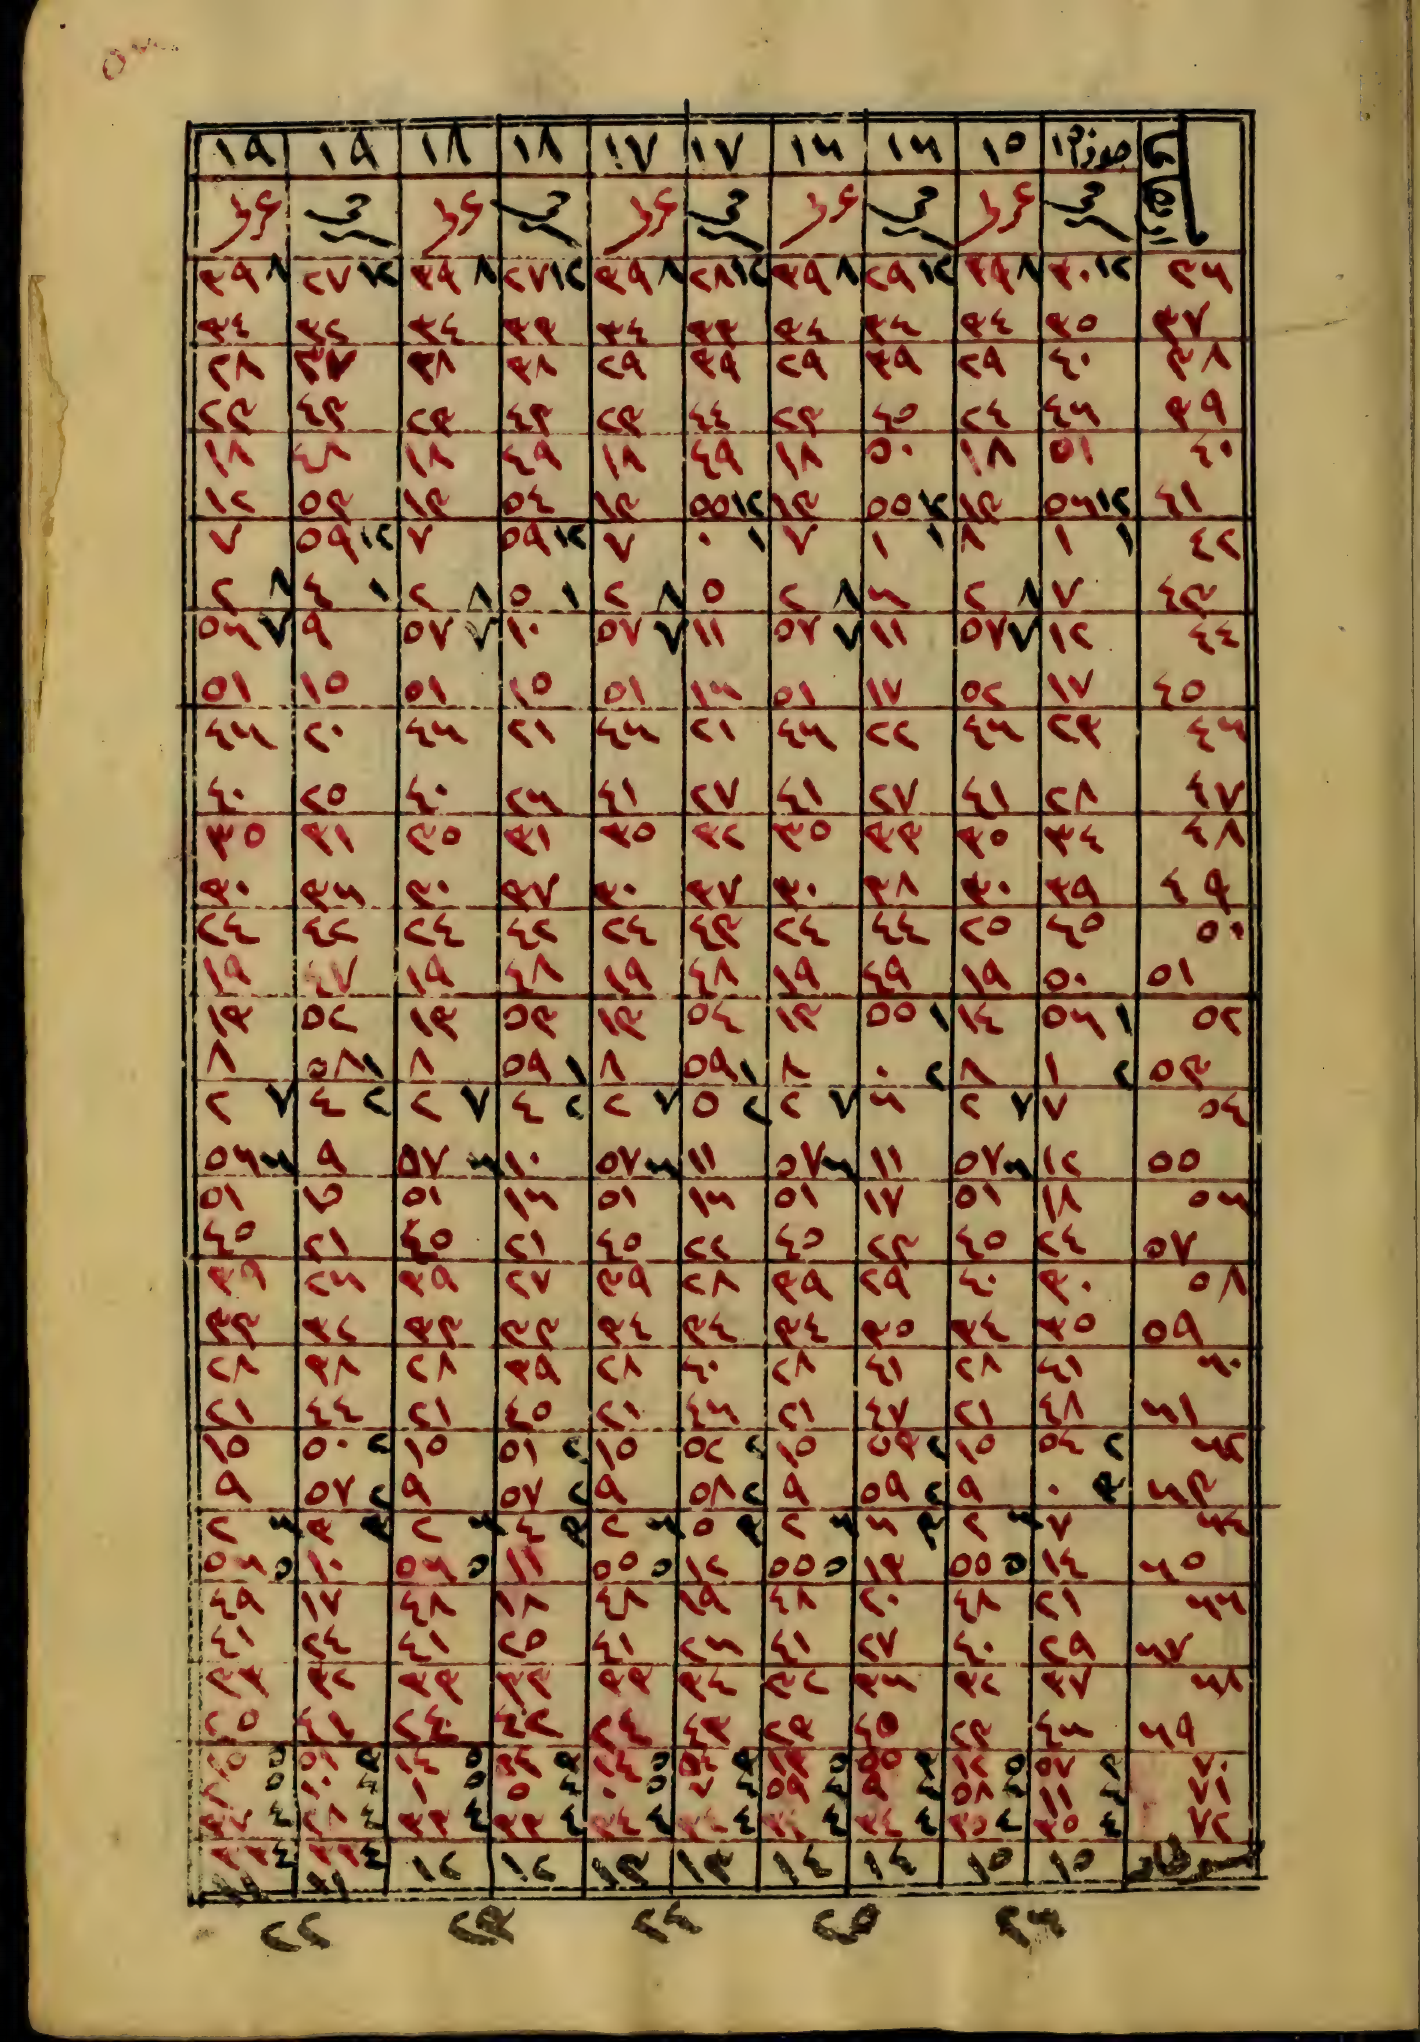 ١٥ ١٦ ١٦ ١٧ ١٧ ١٨ ١٨ ١٩ ١٩
٣٦ ١٢ ٣٠ ٨ ٣٩ ١٢ ٢٩ ٨ ٣٩ ١٢ ٢٨ ٨ ٣٩ ١٢ ٢٧ ٨ ٣٩ ١٢ ٢٧ ٨ ٣٩
٣٧ ٣٥ ٣٤ ٣٤ ٣٤ ٣٣ ٣٤ ٣٣ ٣٤ ٣٢ ٣٤
٣٨ ٤٠ ٢٩ ٣٩ ٢٩ ٣٩ ٢٩ ٣٨ ٢٨ ٣٧ ٢٨
٣٩ ٤٦ ٢٤ ٤٥ ٢٣ ٤٤ ٢٣ ٤٣ ٢٣ ٤٣ ٢٣
٤٠ ٥١ ١٨ ٥٠ ١٨ ٤٩ ١٨ ٤٩ ١٨ ٤٨ ١٨
٤١ ١٢ ٥٦ ١٣ ١٢ ٥٥ ١٣ ١٢ ٥٥ ١٣ ٥٤ ١٣ ٥٣ ١٢
٤٢ ١ ١ ٨ ١ ١ ٧ ١ ٠ ٧ ١٢ ٥٩ ٧ ١٢ ٥٩ ٧
٤٣ ٧ ٨ ٢ ٦ ٨ ٢ ٥ ٨ ٢ ١ ٥ ٨ ٢ ١ ٤ ٨ ٢
٤٤ ١٢ ٧ ٥٧ ١١ ٧ ٥٧ ١١ ٧ ٥٧ ١٠ ٧ ٥٧ ٩ ٧ ٥٦
٤٥ ١٧ ٥٢ ١٧ ٥١ ١٦ ٥١ ١٥ ٥١ ١٥ ٥١
٤٦ ٢٣ ٤٦ ٢٢ ٤٦ ٢١ ٤٦ ٢١ ٤٦ ٢٠ ٤٦
٤٧ ٢٨ ٤١ ٢٧ ٤١ ٢٧ ٤١ ٢٦ ٤٠ ٢٥ ٤٠
٤٨ ٣٤ ٣٥ ٣٣ ٣٥ ٣٢ ٣٥ ٣١ ٣٥ ٣١ ٣٥
٤٩ ٣٩ ٣٠ ٣٨ ٣٠ ٣٧ ٣٠ ٣٧ ٣٠ ٣٦ ٣٠
٥٠ ٤٥ ٢٥ ٤٤ ٢٤ ٤٣ ٢٤ ٤٢ ٢٤ ٤٢ ٢٤
٥١ ٥٠ ١٩ ٤٩ ١٩ ٤٨ ١٩ ٤٨ ١٩ ٤٧ ١٩
٥٢ ١ ٥٦ ١٤ ١ ٥٥ ١٣ ٥٤ ١٣ ٥٣ ١٣ ٥٢ ١٣
٥٣ ٢ ١ ٨ ٢ ٠ ٨ ١ ٥٩ ٨ ١ ٥٩ ٨ ١ ٥٨ ٨
٥٤ ٧ ٧ ٢ ٦ ٧ ٢ ٢ ٥ ٧ ٢ ٢ ٤ ٧ ٢ ٢ ٤ ٧ ٢
٥٥ ١٢ ٦ ٥٧ ١١ ٦ ٥٧ ١١ ٦ ٥٧ ١٠ ٦ ٥٧ ٩ ٦ ٥٦
٥٦ ١٨ ٥١ ١٧ ٥١ ١٦ ٥١ ١٦ ٥١ ١٥ ٥١
٥٧ ٢٤ ٤٥ ٢٣ ٤٥ ٢٢ ٤٥ ٢١ ٤٥ ٢١ ٤٥
٥٨ ٣٠ ٤٠ ٢٩ ٣٩ ٢٨ ٣٩ ٢٧ ٣٩ ٢٦ ٣٩
٥٩ ٣٥ ٣٤ ٣٥ ٣٤ ٣٤ ٣٤ ٣٣ ٣٣ ٣٢ ٣٣
٦٠ ٤١ ٢٨ ٤١ ٢٨ ٤٠ ٢٨ ٣٩ ٢٨ ٣٨ ٢٨
٦١ ٤٨ ٢١ ٤٧ ٢١ ٤٦ ٢١ ٤٥ ٢١ ٤٤ ٢١
٦٢ ٢ ٥٤ ١٥ ٢ ٥٣ ١٥ ٢ ٥٢ ١٥ ٢ ٥١ ١٥ ٢ ٥٠ ١٥
٦٣ ٣ ٠ ٩ ٢ ٥٩ ٩ ٢ ٥٨ ٩ ٢ ٥٧ ٩ ٢ ٥٧ ٩
٦٤ ٧ ٦ ٢ ٣ ٦ ٦ ٢ ٣ ٥ ٦ ٢ ٣ ٤ ٦ ٢ ٣ ٣ ٦ ٢
٦٥ ١٤ ٥ ٥٥ ١٣ ٥ ٥٥ ١٢ ٥ ٥٥ ١١ ٥ ٥٦ ١٠ ٥ ٥٦
٦٦ ٢١ ٤٨ ٢٠ ٤٨ ١٩ ٤٨ ١٨ ٤٨ ١٧ ٤٩
٦٧ ٢٩ ٤٠ ٢٧ ٤١ ٢٦ ٤١ ٢٥ ٤١ ٢٤ ٤١
٦٨ ٣٧ ٣٢ ٣٦ ٣٢ ٣٤ ٣٣ ٣٣ ٣٣ ٣٢ ٣٣
٦٩ ٤٦ ٢٣ ٤٥ ٢٣ ٤٣ ٢٤ ٤٢ ٢٤ ٤١ ٢٥
٧٠ ٣ ٥٧ ٥ ١٢ ٣ ٥٥ ٥ ١٣ ٣ ٥٤ ٥ ١٤ ٣ ٥٢ ٥ ١٤ ٣ ٥١ ٥ ١٥
٧١ ٤ ١١ ٤ ٥٨ ٤ ٩ ٤ ٥٩ ٤ ٧ ٥ ٠ ٤ ٥ ٥ ١ ٤ ٥
٧٢ ٤ ٣٥ ٤ ٣٥ ٤ ٣٤ ٤ ٤ ٤ ٤ ٣٣ ٤ ٣٣ ٤ ٢٨ ٤ ٣٧
١٥ ١٥ ١٤ ١٤ ١٣ ١٣ ١٢ ١٢ ١١ ١١
٢٦ ٢٥ ٢٤ ٢٣ ٢٢